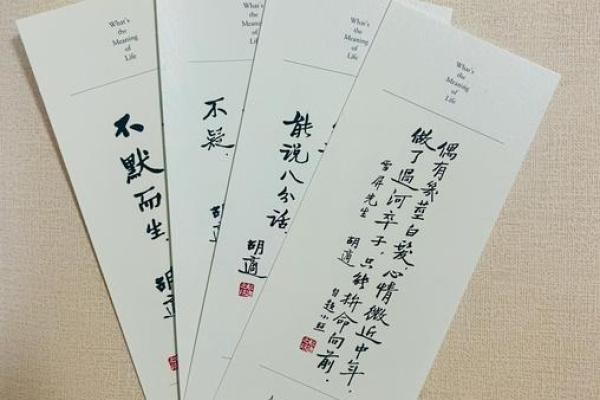 What's
the
Meaning
of
Life
不默而生.
胡適
What's
the
Meaning
of
Life
不疑.
胡
What's
the
Meaning
of
Life
能说八分话.
胡適
What's
the
Meaning
of
Life
偶有幾莖白髮,心情微近中年.
做了過河卒子,只能拚命向前.
雪屏先生 胡適